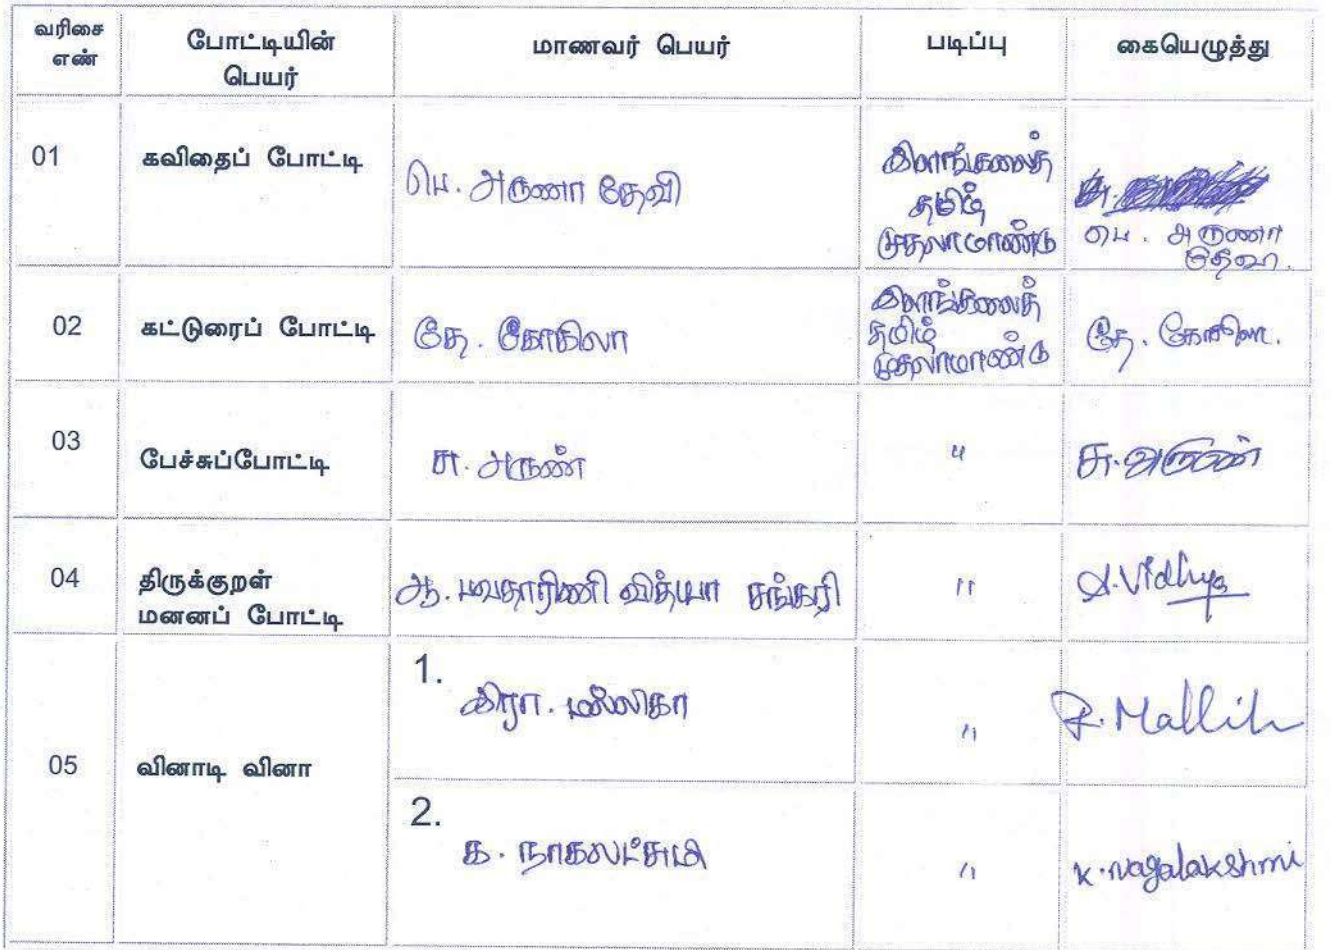 வரிசை எண்
போட்டியின் பெயர்
மாணவர் பெயர்
படிப்பு
கையெழுத்து
01
கவிதைப் போட்டி
பெ. அருணா தேவி
இளங்கலைத்
தமிழ்
முதலாமாண்டு
பெ. அருணா
தேவி.
02
கட்டுரைப் போட்டி
தே. கோகிலா
இளங்கலைத்
தமிழ்
முதலாமாண்டு
தே. கோகிலா.
03
பேச்சுப்போட்டி
சு. அருண்
"
சு. அருண்
04
திருக்குறள்
மனனப் போட்டி
ஆ. பவதாரிணி வித்யா சங்கரி
"
A. Vidhya
05
வினாடி வினா
1.
இரா. மல்லிகா
"
R. Mallik
2.
க. நாகலட்சுமி
"
K. Nagalakshmi